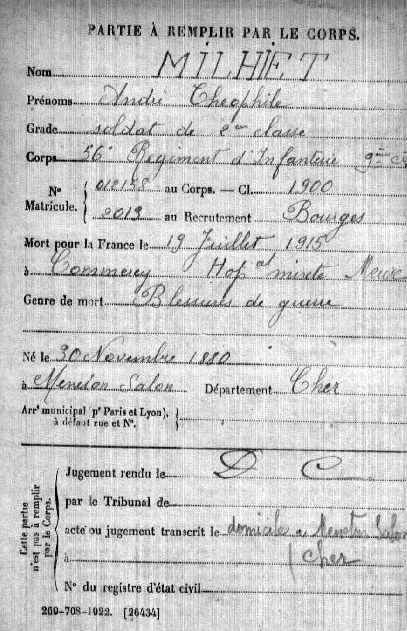 PARTIE À REMPLIR PAR LE CORPS.
Nom MILHIET
Prénoms André Théophile
Grade soldat de 2me classe
Corps 56e Régiment d'Infanterie 9ème Cie
N° 012158 au Corps. — Cl. 1900
Matricule. 2013 au Recrutement Bourges
Mort pour la France le 19 Juillet 1915
à Commercy Hopal mixte Meuse
Genre de mort Blessures de guerre
Né le 30 Novembre 1880
à Menetou Salon Département Cher
Arrt municipal (pr Paris et Lyon),
à défaut rue et N°.
Cette partie n'est pas à remplir par le Corps.
Jugement rendu le D C
par le Tribunal de
acte ou jugement transcrit le domicile à Menetou Salon
à Cher
N° du registre d'état civil
269-708-1922. [26434]